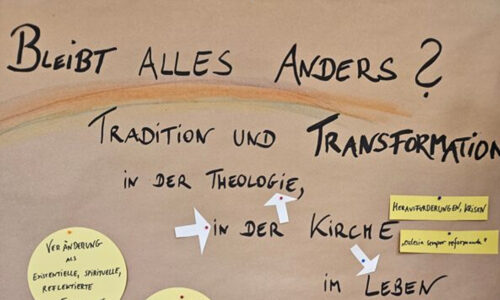 BLEIBT ALLES ANDERS?
TRADITION UND TRANSFORMATION
IN DER THEOLOGIE,
IN DER KIRCHE
IM LEBEN
HERAUSFORDERUNGEN, KRISEN
"ecclesia semper reformanda"
VERÄNDERUNG
ALS
EXISTENTIELLE, SPIRITUELLE,
REFLEKTIERTE